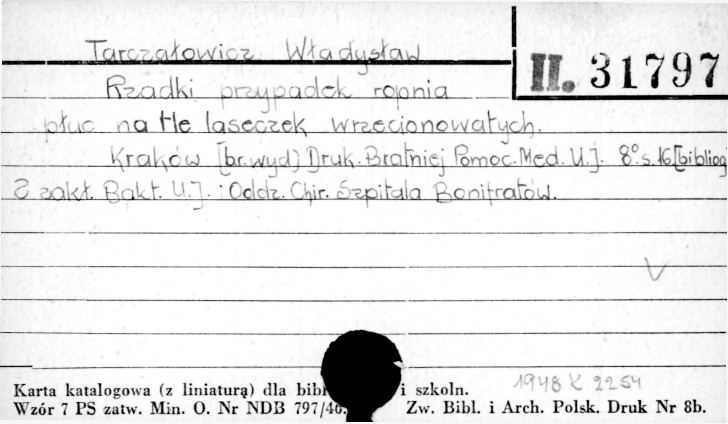 Tarczałowicz Władysław
II. 31797
Rzadki przypadek ropnia
płuc na tle laseczek wrzecionowatych.
Kraków [br. wyd) Druk. Bratniej Pomoc. Med. U.J. 8° s. 16 [bibliog
Z zakł. Bakt. U.J. i Oddz. Chir. Szpitala Bonifratów.
1948 K 2254
Karta katalogowa (z liniaturą) dla bibl i szkoln.
Wzór 7 PS zatw. Min. O. Nr NDB 797/46. Zw. Bibl. i Arch. Polsk. Druk Nr 8b.